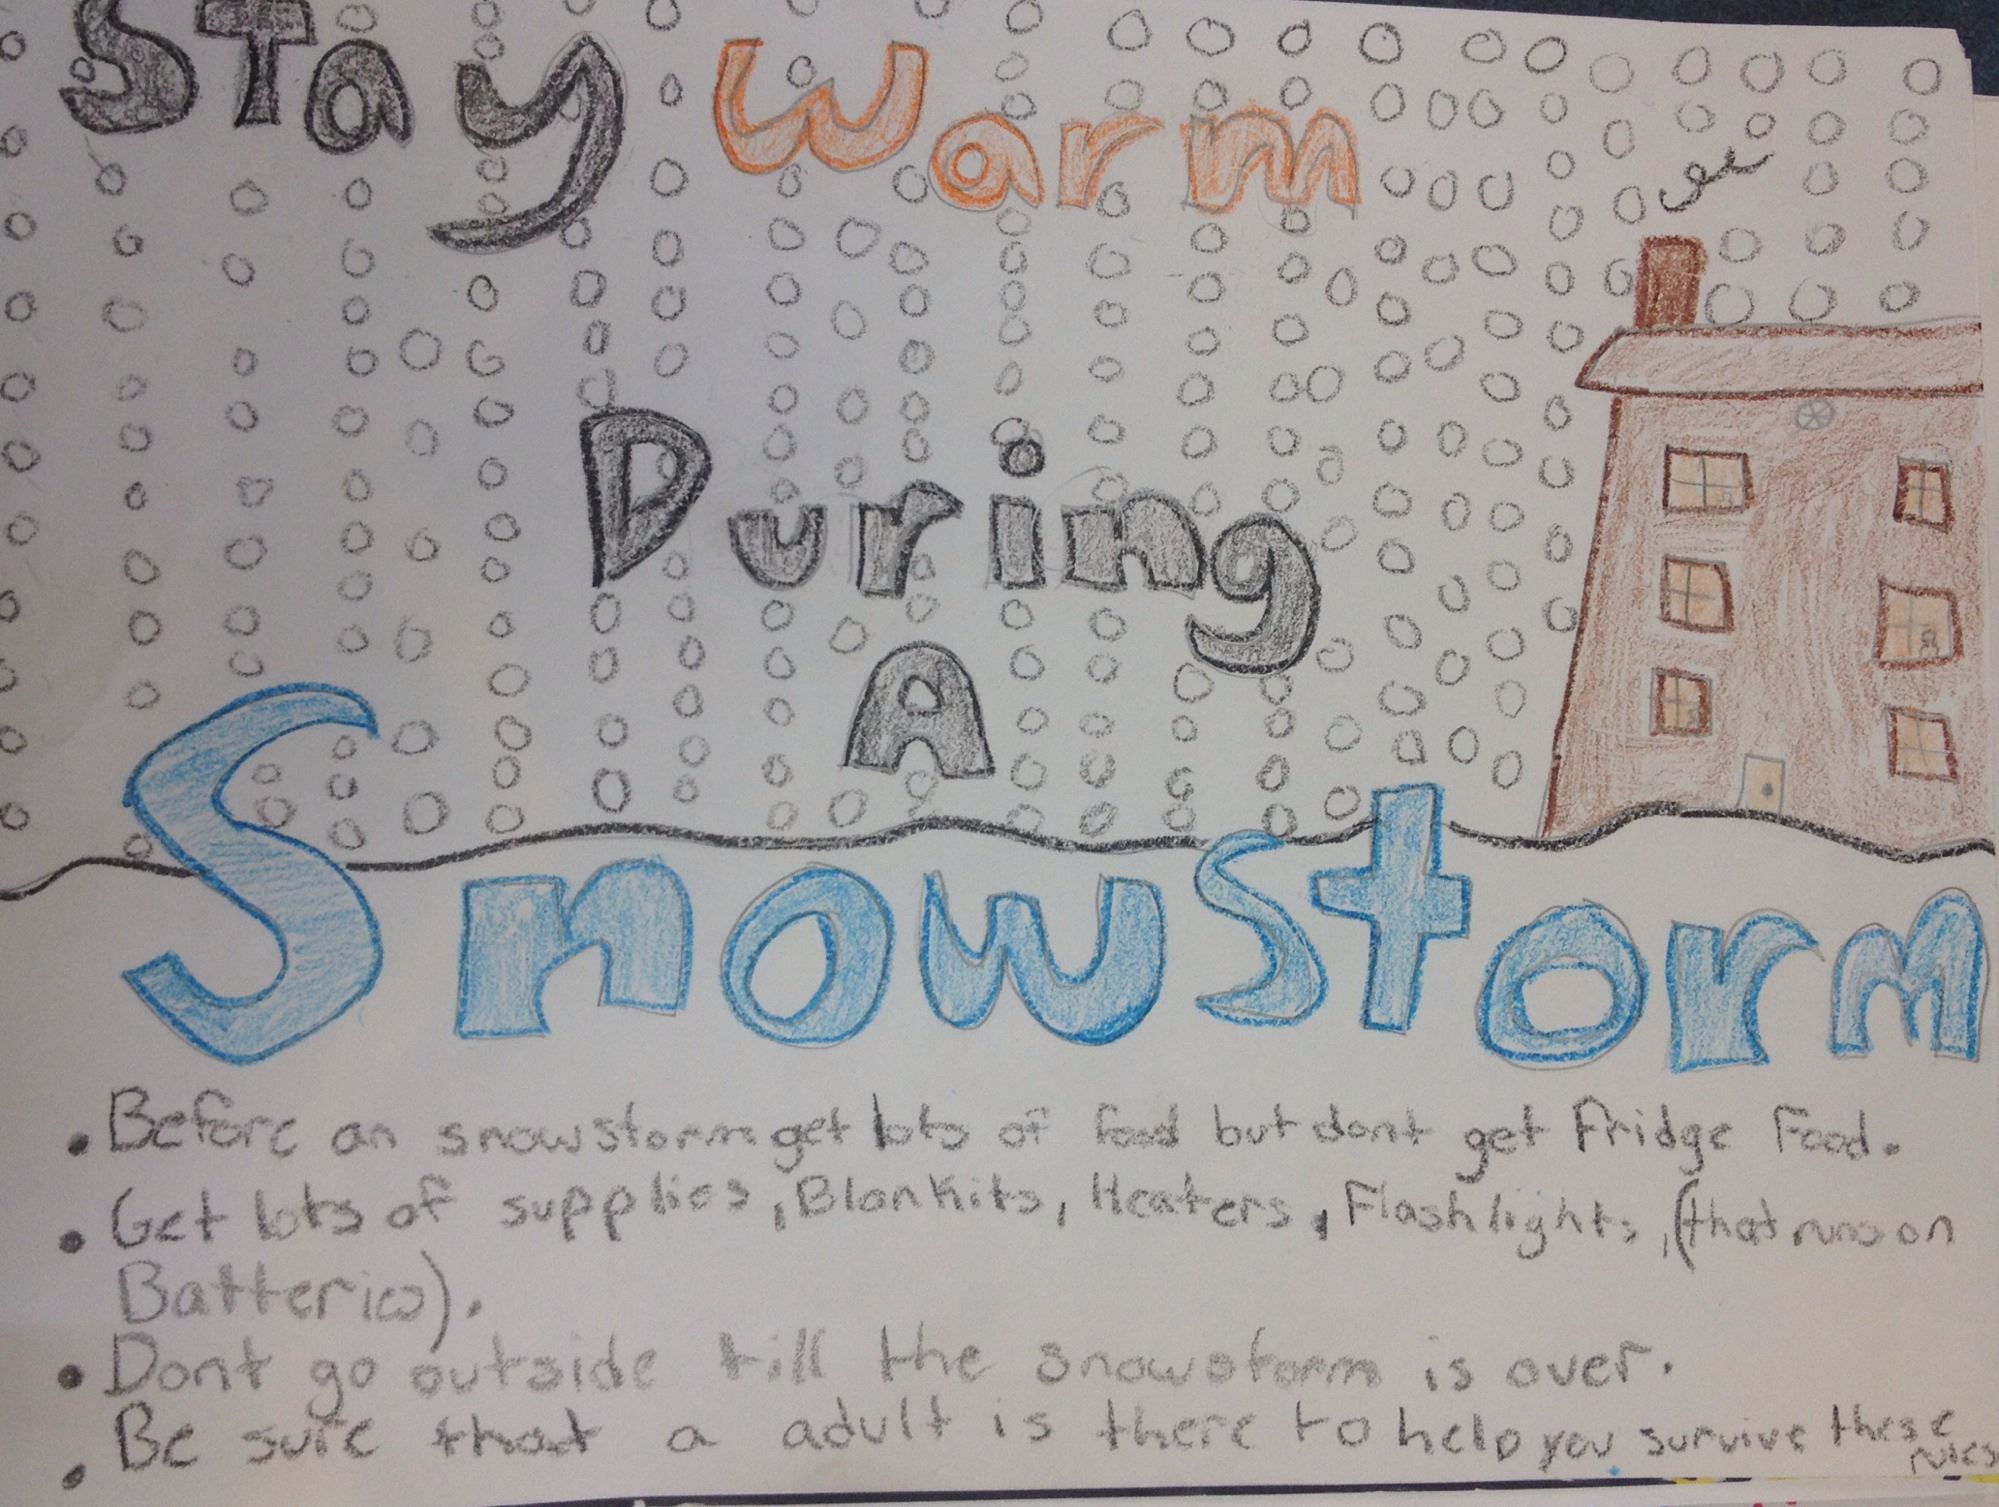 Stay Warm
During
A
Snowstorm
• Before an snowstorm get lots of food but dont get Fridge Food.
• Get lots of supplies, Blankits, Heaters, Flashlights, (that runs on
Batteries).
• Dont go outside till the snowstorm is over.
• Be sure that a adult is there to help you survive these
rules